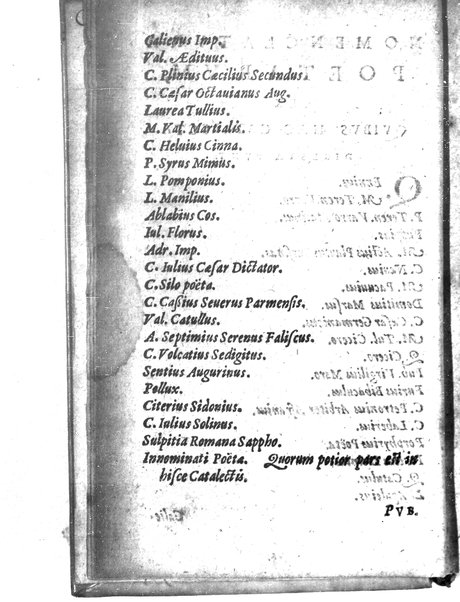 Galienus Imp.
Val. Ædituus.
C. Plinius Cæcilius Secundus.
C. Cæsar Octauianus Aug.
Laurea Tullius.
M. Val. Martialis.
C. Heluius Cinna.
P. Syrus Mimus.
L. Pomponius.
L. Manilius.
Ablabius Cos.
Iul. Florus.
Adr. Imp.
C. Iulius Cæsar Dictator.
C. Silo poëta.
C. Caßius Seuerus Parmensis.
Val. Catullus.
A. Septimius Serenus Faliscus.
C. Volcatius Sedigitus.
Sentius Augurinus.
Pollux.
Citerius Sidonius.
C. Iulius Solinus.
Sulpitia Romana Sappho.
Innominati Poëta. Quorum potior pars est in
hisce Catalectis.
PVB.